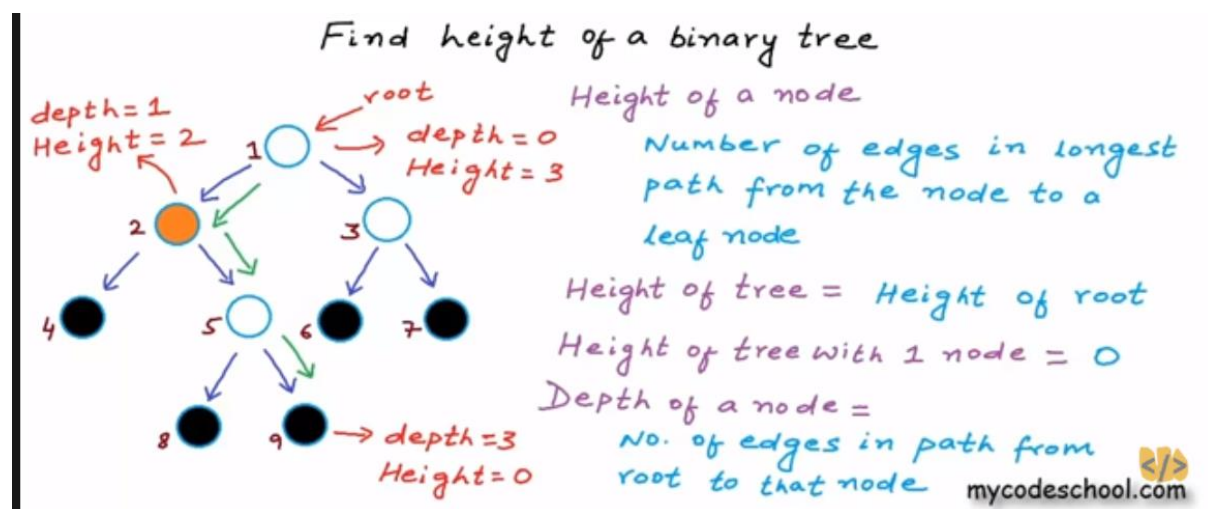 Find height of a binary tree
depth = 1
Height = 2
root
depth = 0
Height = 3
1
2
3
4
5
6
7
8
9
depth = 3
Height = 0
Height of a node
Number of edges in longest
path from the node to a
leaf node
Height of tree = Height of root
Height of tree with 1 node = 0
Depth of a node =
No. of edges in path from
root to that node
</>
mycodeschool.com